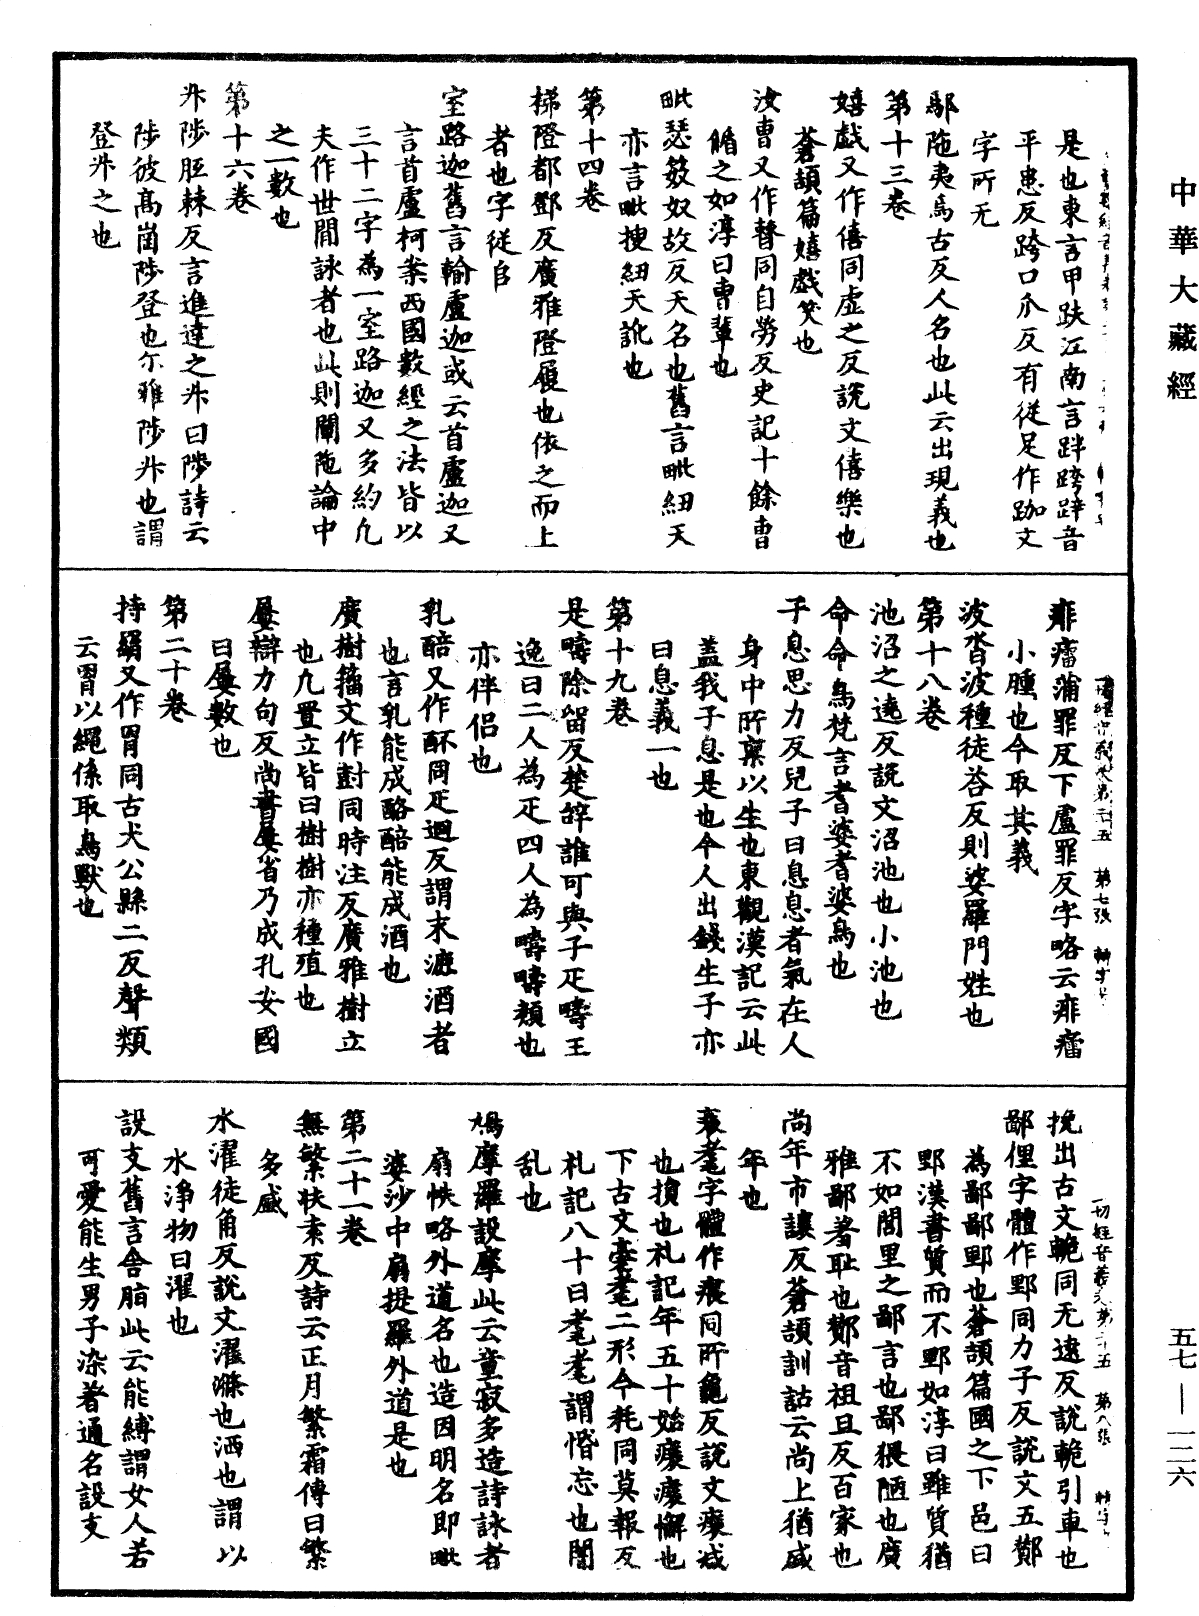 中華大藏經
是也東言甲趺江南言跘跨跘音
平患反跨口爪反有從足作跏文
字所无
鄔陁夷烏古反人名也此云出現義也
第十三卷
嬉戲又作僖同虛之反說文僖樂也
蒼頡篇嬉戲笑也
汝曹又作𣍘同自勞反史記十餘曹
循之如淳曰曹輩也
毗瑟笯奴故反天名也舊言毗紐天
亦言毗搜紐天訛也
第十四卷
梯隥都鄧反廣雅隥履也依之而上
者也字從𨸏
室路迦舊言輸盧迦或云首盧迦又
言首盧柯案西國數經之法皆以
三十二字為一室路迦又多約凡
夫作世間詠者也此則闡陁論中
之一數也
第十六卷
升陟胝棘反言進達之升曰陟詩云
陟彼高崗陟登也尒雅陟升也謂
登升之也
痱癗蒲罪反下盧罪反字略云痱癗
小腫也今取其義
波沓波種徒荅反則婆羅門姓也
第十八卷
池沼之遶反說文沼池也小池也
命命鳥梵言耆婆耆婆鳥也
子息思力反兒子曰息息者氣在人
身中所稟以生也東觀漢記云此
蓋我子息是也今人出錢生子亦
曰息義一也
第十九卷
是疇除留反楚辭誰可與子疋疇王
逸曰二人為疋四人為疇疇類也
亦伴侶也
乳醅又作酥同疋迴反謂未漉酒者
也言乳能成酪醅能成酒也
廣樹籀文作尌同時注反廣雅樹立
也凡置立皆曰樹樹亦種殖也
屢辯力句反尚書屢省乃成孔安國
曰屢數也
第二十卷
持羂又作罥同古犬公縣二反聲類
云罥以繩係取鳥獸也
一切經音義卷第二十五 第七張
挽出古文輓同无遠反說輓引車也
鄙俚字體作野同力子反說文五鄼
為鄙鄙野也蒼頡篇國之下邑曰
野漢書質而不野如淳曰雖質猶
不如閭里之鄙言也鄙猥陋也廣
雅鄙羞恥也鄼音祖且反百家也
尚年市讓反蒼頡訓詁云尚上猶盛
年也
衰耄字體作𤸬同所龜反說文𤸬減
也損也礼記年五十始𤸬𤸬懈也
下古文薹耄二形今耗同莫報反
礼記八十曰耄耄謂惛忘也闇
乱也
鳩摩羅設摩此云童寂多造詩詠者
扇帙略外道名也造因明名即毗
婆沙中扇提羅外道是也
第二十一卷
無繁扶素反詩云正月繁霜傳曰繁
多盛
水濯徒角反說文濯滌也洒也謂以
水淨物曰濯也
設支舊言舍脂此云能縛謂女人若
可愛能生男子染著通名設支
一切經音義卷第二十五 第八張
五七—一二六